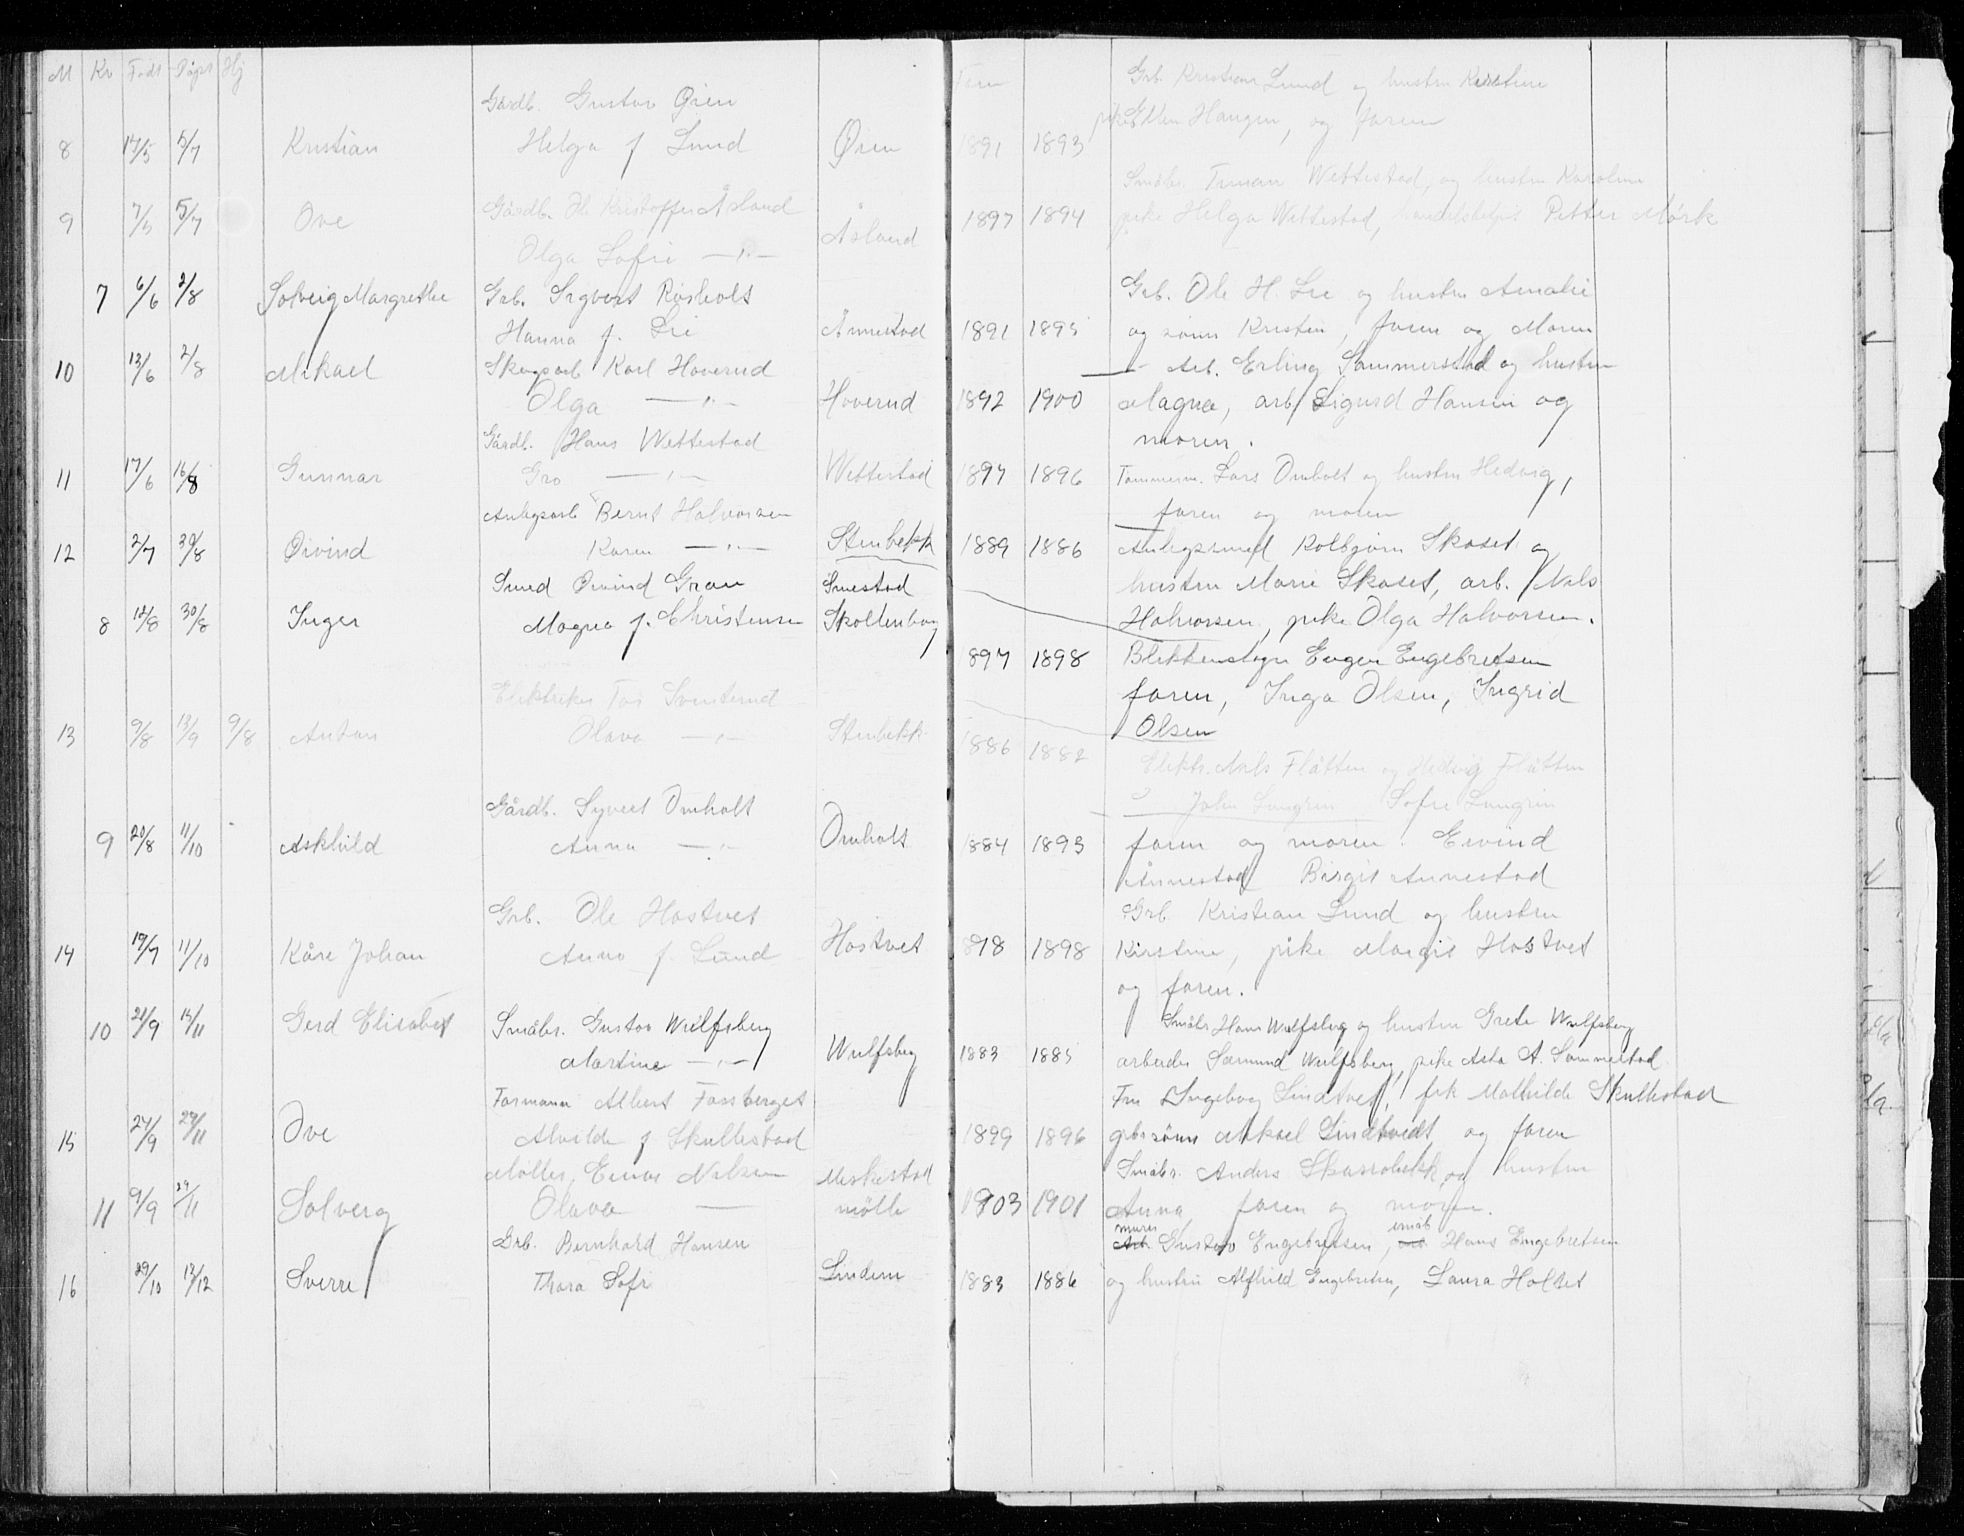 M Kv Født Døpt Hj
8 14/5 5/7 Kristian Gårdb. Gustav Øien
Helga f Lund Øien 1891 1893 Grb. Kristian Lund og hustru Kirstine
pike Ellen Haugen, og faren
9 7/5 5/7 Ove Gårdb. Kristoffer Åsland
Olga Sofie —"— Åsland 1897 1894 Småbr. Wettestad, og hustru Karoline
pike Helga Wettestad, Petter Mørk
7 6/6 2/8 Solveig Margrethe Grb. Sigvart Røsholt
Hanna f. Lie Annestad 1891 1895 Grb. Ole H. Lie og hustru Amalie
og sønn Kristen, faren og Moren
10 13/6 2/8 Mikael Skogsarb Karl Haverud
Olga —"— Haverud 1892 1900 Arb. Erling Sommerstad og hustru
Magna, arb. Sigurd Hansen og
moren.
11 17/6 16/8 Gunnar Gårdb. Hans Wettestad
Gro —"— Wettestad 1897 1896 Tømmerm. Lars Omholt og hustru Hedvig,
faren og moren
12 2/7 30/8 Øivind Anlegsarb Bernt Halvorsen
Karen —"— Stenbekk 1889 1886 Anlegssmed Kolbjørn Skaset og
hustru Marie Skaset, arb. Nils
Halvorsen, pike Olga Halvorsen.
8 12/8 30/8 Inger Smed Øivind Gran
Magna f. Christensen Smestad
Skollenborg 897 1898 Blikkenslager Eugen Engebretsen
faren, Inga Olsen, Ingrid
Olsen
13 9/8 13/9 9/8 Anton Elektriker Svensrud
Olava —"— Stenbekk 1886 1882 Elektr. Nils Flåtten og Hedvig Flåtten
John Lungren Sofie Lungren
9 20/8 11/10 Askhild Gårdb. Syvert Omholt
Anna —"— Omholt 1884 1893 faren og moren. Eivind
Annestad Birgit Annestad
14 19/7 11/10 Kåre Johan Grb. Ole Hostvet
Anna f. Lund Hostvet 898 1898 Grb. Kristian Lund og hustru
Kirstine, pike Margit Hostvet
og faren.
10 21/9 15/11 Gerd Elisabet Småbr. Gustav Wulfsberg
Martine —"— Wulfsberg 1883 1885 Småbr Hans Wulfsberg og hustru Grete Wulfsberg
arbeider Sæmund Wulfsberg, pike Asta A. Sommerstad
15 24/9 29/11 Ove Formann Albert Fossberget
Alvilde f Skullestad 1899 1896 Fru Ingeborg Lindtvet, frk Mathilde Skullestad
sønn Mikael Lindtvedt og faren
11 9/9 29/11 Solveig Møller Einar Nilsen
Olava — Meskestad
mølle 1903 1901 Småbr. Anders og hustru
Anna faren og moren.
16 29/10 13/12 Sverre Grb. Bernhard Hansen
Thora Sofi Lindem 1883 1886 murer Gustav Engebretsen, småb Hans Engebretsen
og hustru Alfhild Engebretsen, Laura Holtet